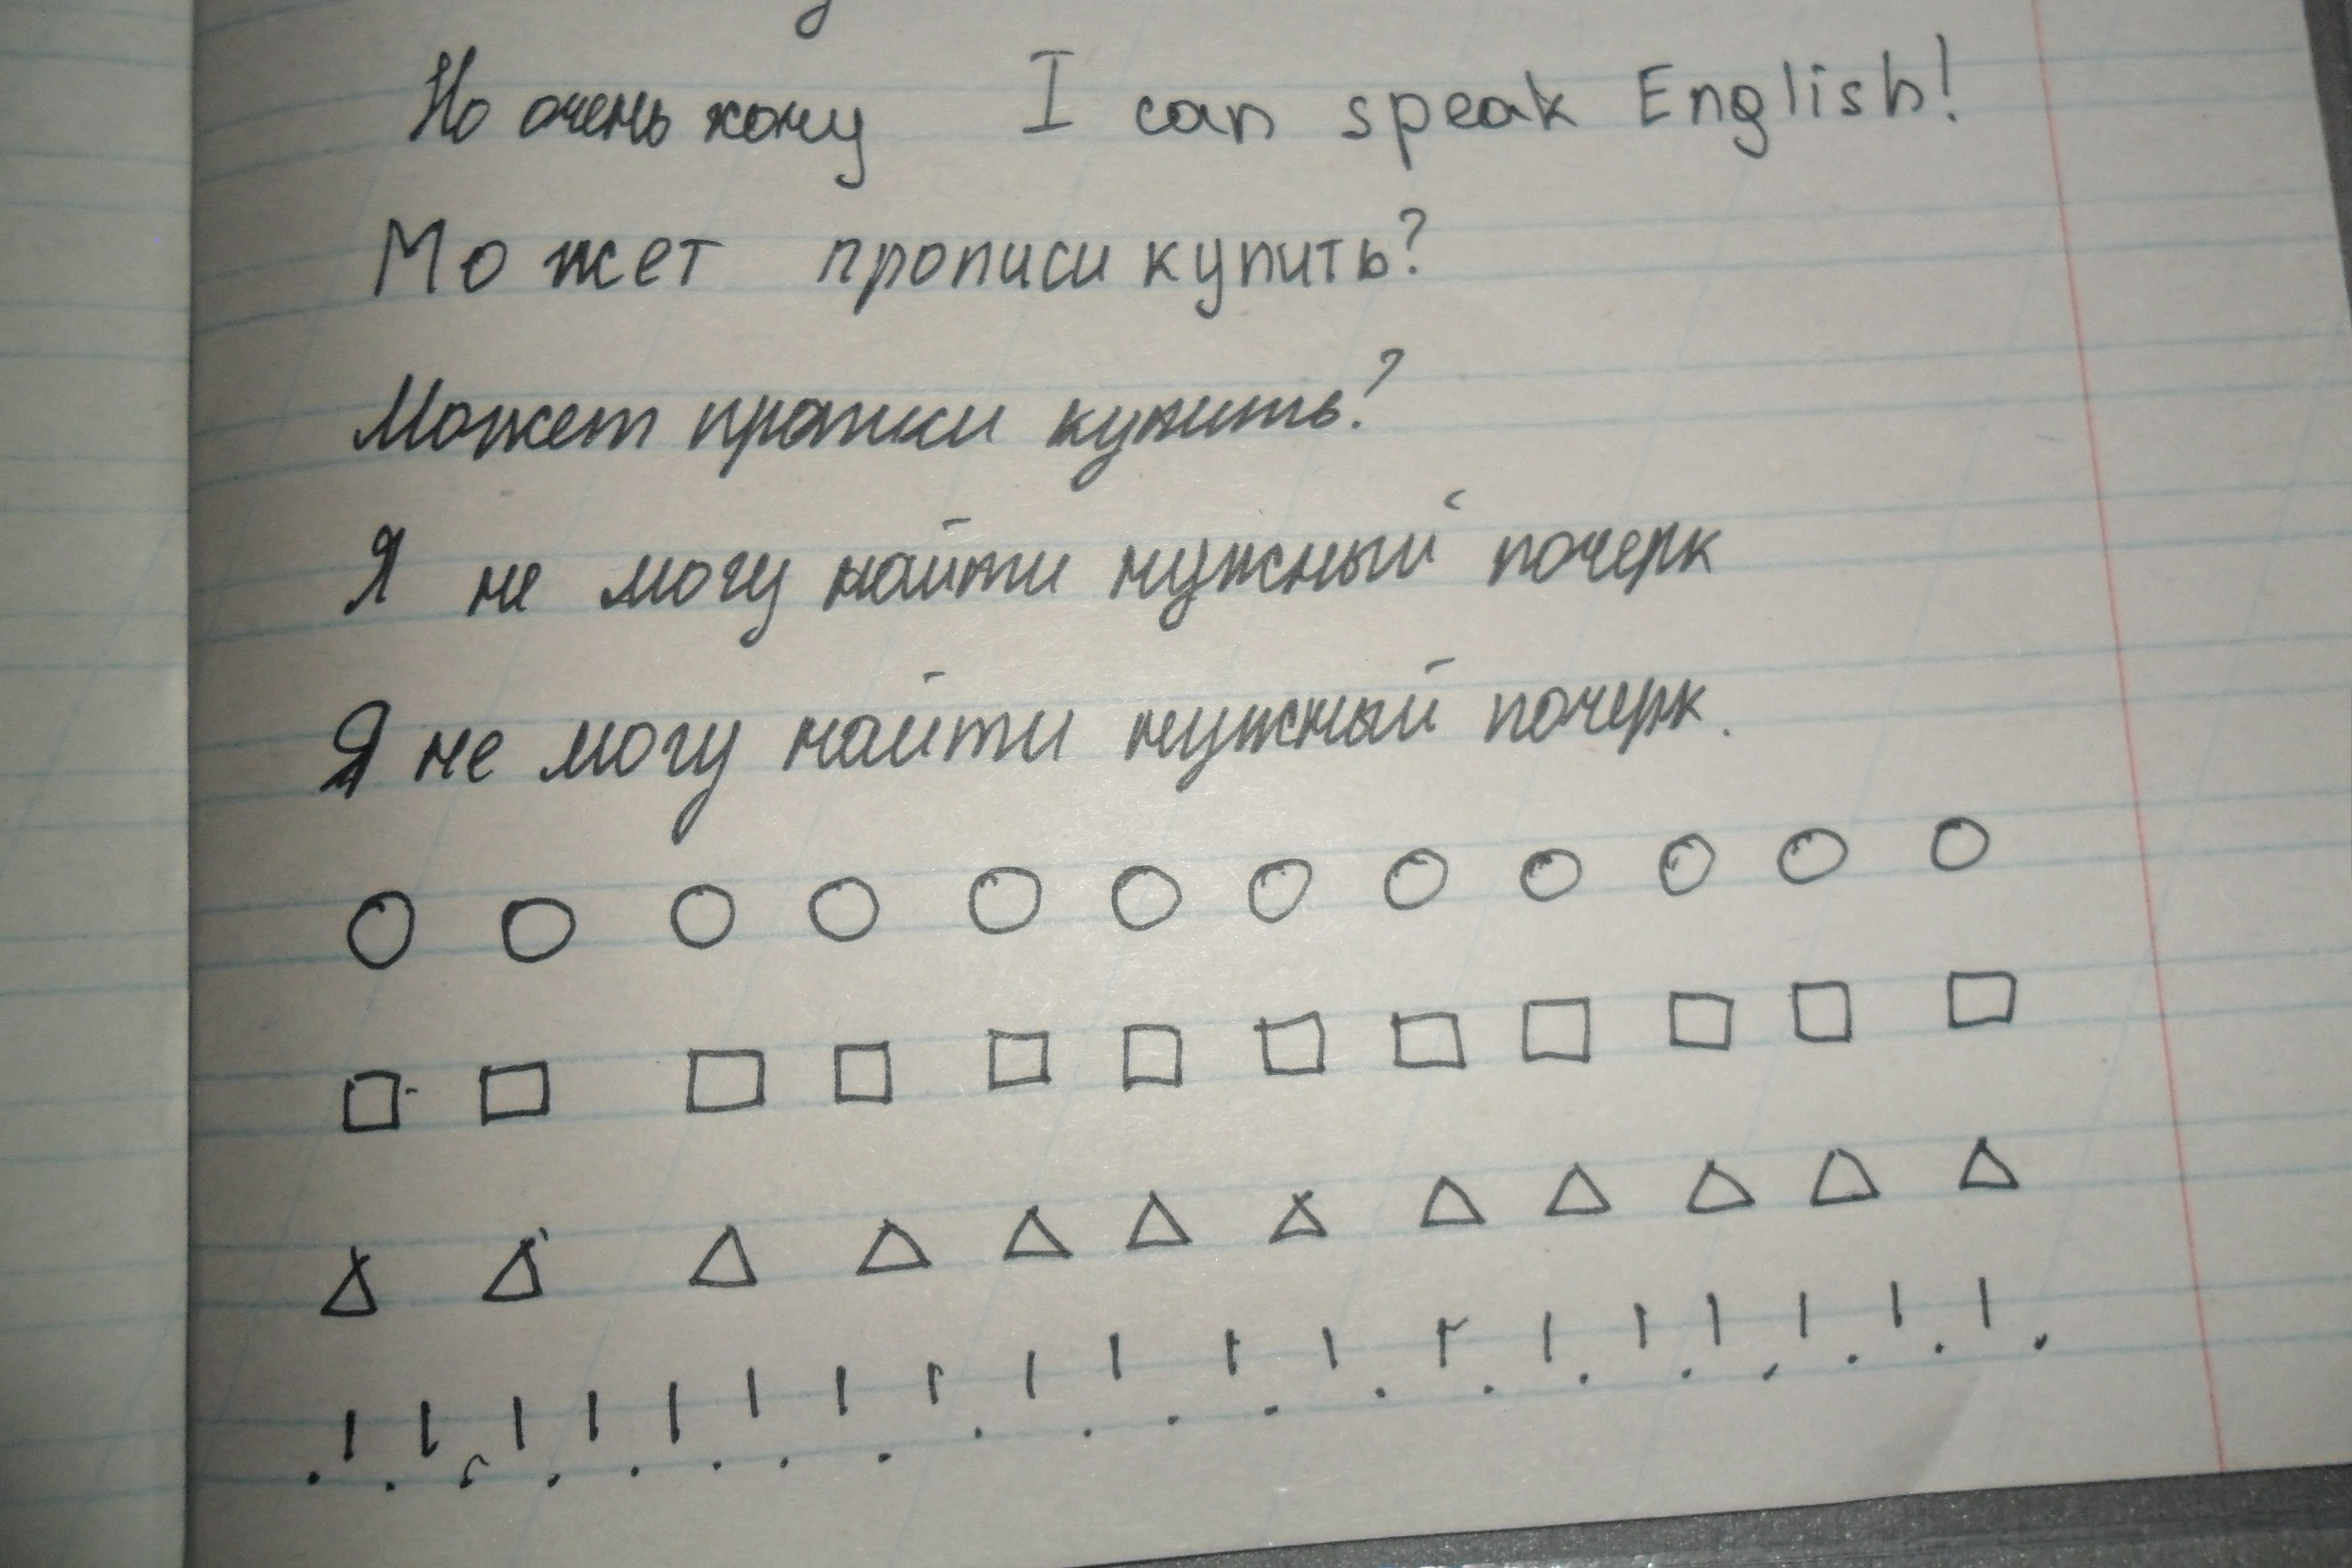 Но очень хочу I can speak English!
Может прописи купить?
Может прописи купить?
Я не могу найти нужный почерк
Я не могу найти нужный почерк.